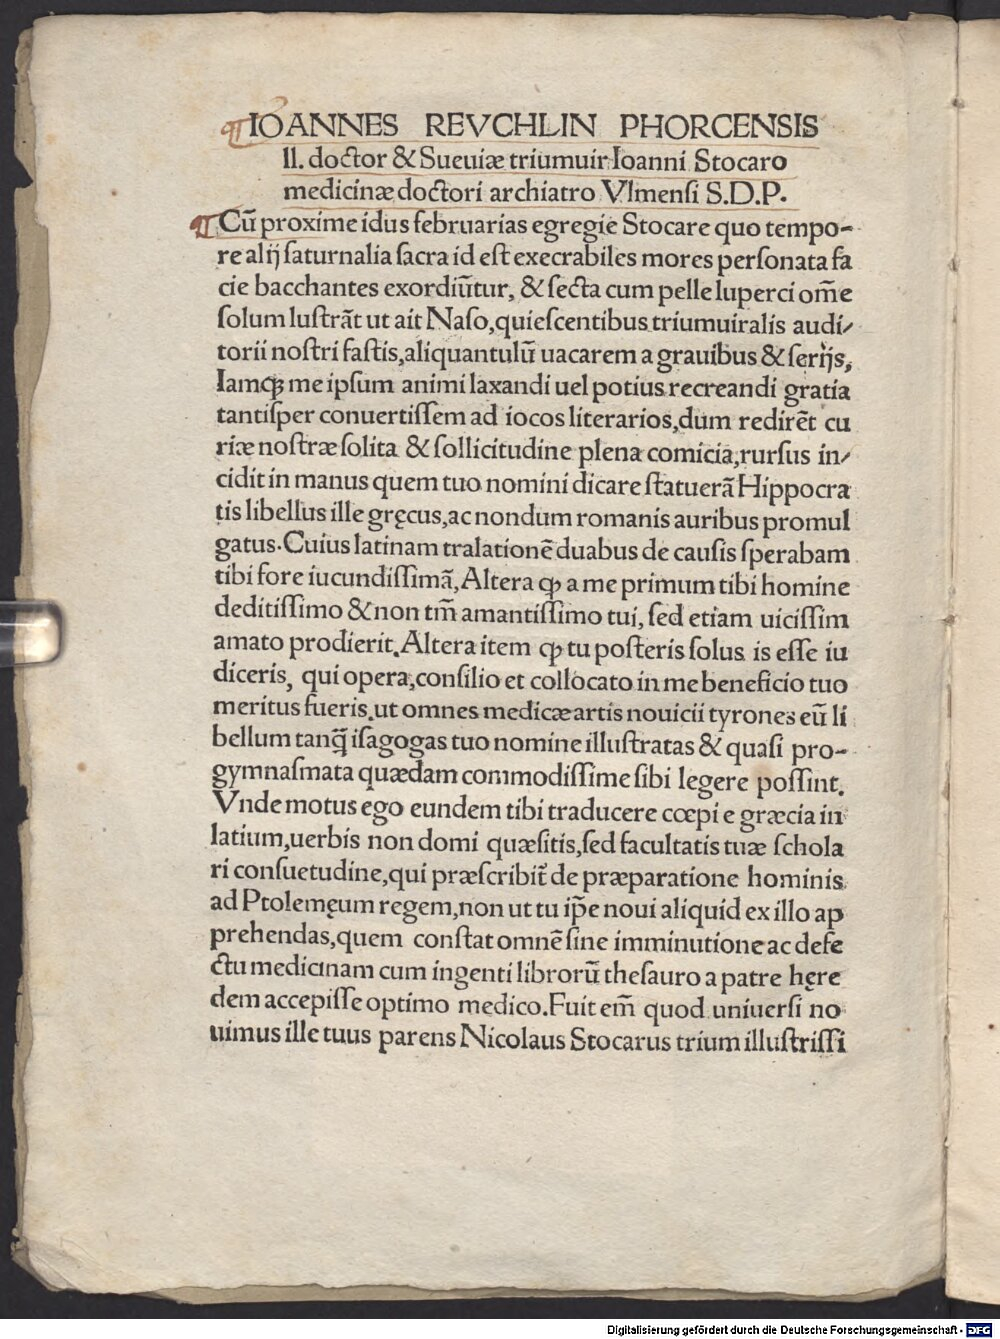 ¶IOANNES REVCHLIN PHORCENSIS
ll. doctor & Sueuiæ triumuir Ioanni Stocaro
medicinæ doctori archiatro Vlmenſi S.D.P.
¶Cū proxime idus februarias egregie Stocare quo tempo-
re alij ſaturnalia ſacra id eſt execrabiles mores perſonata fa
cie bacchantes exordiūtur, & ſecta cum pelle luperci om̄e
ſolum luſtrāt ut ait Naſo,quieſcentibus triumuiralis audi/
torii noſtri faſtis,aliquantulū uacarem a grauibus & ſerijs,
Iamqꝫ me ipſum animi laxandi uel potius recreandi gratia
tantiſper conuertiſſem ad iocos literarios,dum redirēt cu
riæ noſtræ ſolita & ſollicitudine plena comicia,rurſus in/
cidit in manus quem tuo nomini dicare ſtatuerā Hippocra
tis libellus ille gręcus,ac nondum romanis auribus promul
gatus.Cuius latinam tralationē duabus de cauſis ſperabam
tibi fore iucundiſſimā,Altera ꝙ a me primum tibi homine
deditiſſimo & non tm̄ amantiſſimo tui, ſed etiam uiciſſim
amato prodierit.Altera item ꝙ tu poſteris ſolus is eſſe iu
diceris, qui opera,conſilio et collocato in me beneficio tuo
meritus fueris.ut omnes medicæ artis nouicii tyrones eū li
bellum tanq̄ iſagogas tuo nomine illuſtratas & quaſi pro-
gymnaſmata quædam commodiſſime ſibi legere poſſint.
Vnde motus ego eundem tibi traducere cœpi e græcia in
latium,uerbis non domi quæſitis,ſed facultatis tuæ ſchola
ri conſuetudine,qui præſcribit̄ de præparatione hominis
ad Ptolemęum regem,non ut tu ip̄e noui aliquid ex illo ap
prehendas,quem conſtat omnē ſine imminutione ac defe
ctu medicinam cum ingenti librorū theſauro a patre hęre
dem accepiſſe optimo medico.Fuit em̄ quod uniuerſi no
uimus ille tuus parens Nicolaus Stocarus trium illuſtriſſi
Digitalisierung gefördert durch die Deutsche Forschungsgemeinschaft - DFG